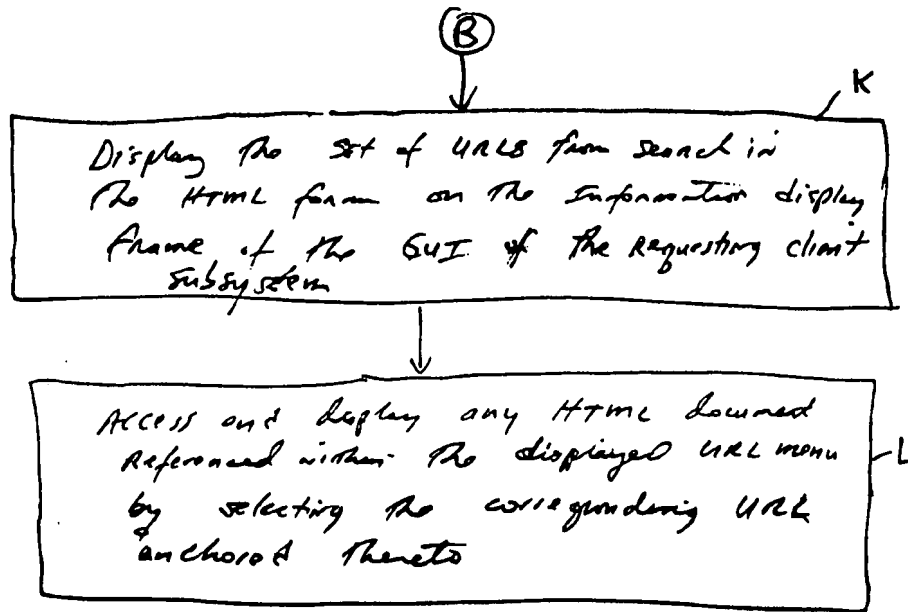 B
K
Display the set of URLs from search in
the HTML form on the Information display
frame of the GUI of the requesting client
subsystem
Access and display any HTML document
referenced within the displayed URL menu
L
by selecting the corresponding URL
anchored thereto